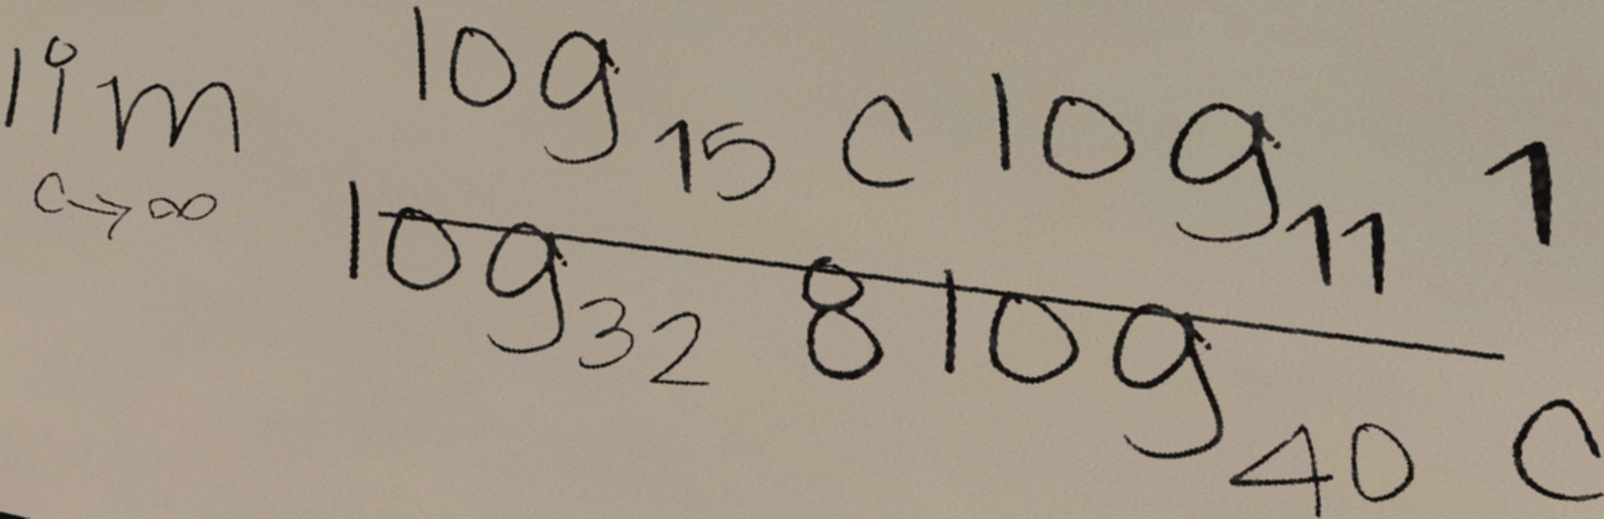 lim log₁₅ c log₁₁ 1
c→∞ log₃₂ 8 log₄₀ c